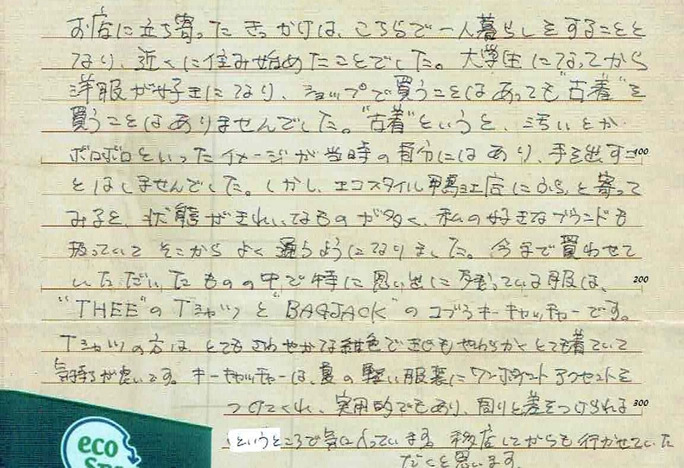 お店に立ち寄ったきっかけは、こちらで一人暮らしをすることと
なり、近くに住み始めたことでした。大学生になってから
洋服が好きになり、ショップで買うことはあっても"古着"を
買うことはありませんでした。"古着"というと、汚いとか
ボロボロといったイメージが当時の自分にはあり、手を出すこ 100
とはしませんでした。しかし、エコスタイル鴨江店にふらっと寄って
みると、状態がきれいなものが多く、私の好きなブランドも
扱っていてそこからよく通うようになりました。今まで買わせて
いただいたものの中で特に思い出に残っている服は、 200
"THEE"のTシャツと"BAGJACK"のコブラキーキャッチャーです。
Tシャツの方は、とてもさわやかな紺色で生地もやわらかくとても着ていて
気持ちが良いです。キーキャッチャーは、夏の軽い服装にワンポイントアクセントを
つけてくれ、実用的でもあり、周りと差をつけられる 300
というところで気に入っています。移店してからも行かせていた
だくと思います。
eco